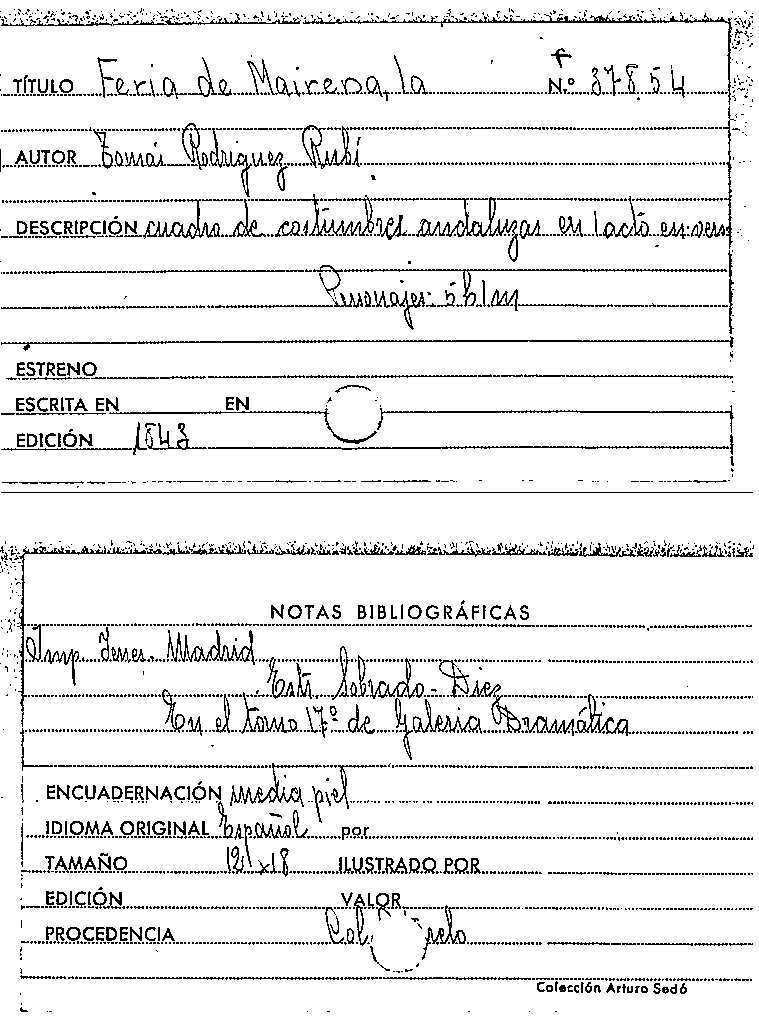 TÍTULO Feria de Mairena, la N.º 37854
AUTOR Tomás Rodriguez Rubí
DESCRIPCIÓN cuadro de costumbres andaluzas en 1 acto en vers
Personajes: 5 h 1 m
ESTRENO
ESCRITA EN EN
EDICIÓN 1843
NOTAS BIBLIOGRÁFICAS
Imp. Madrid
Estr. Sobrado - Diez
En el tomo 17º de Galeria Dramática
ENCUADERNACIÓN media piel
IDIOMA ORIGINAL Español por
TAMAÑO 12 x 18 ILUSTRADO POR
EDICIÓN VALOR
PROCEDENCIA Col.
Colección Arturo Sedó